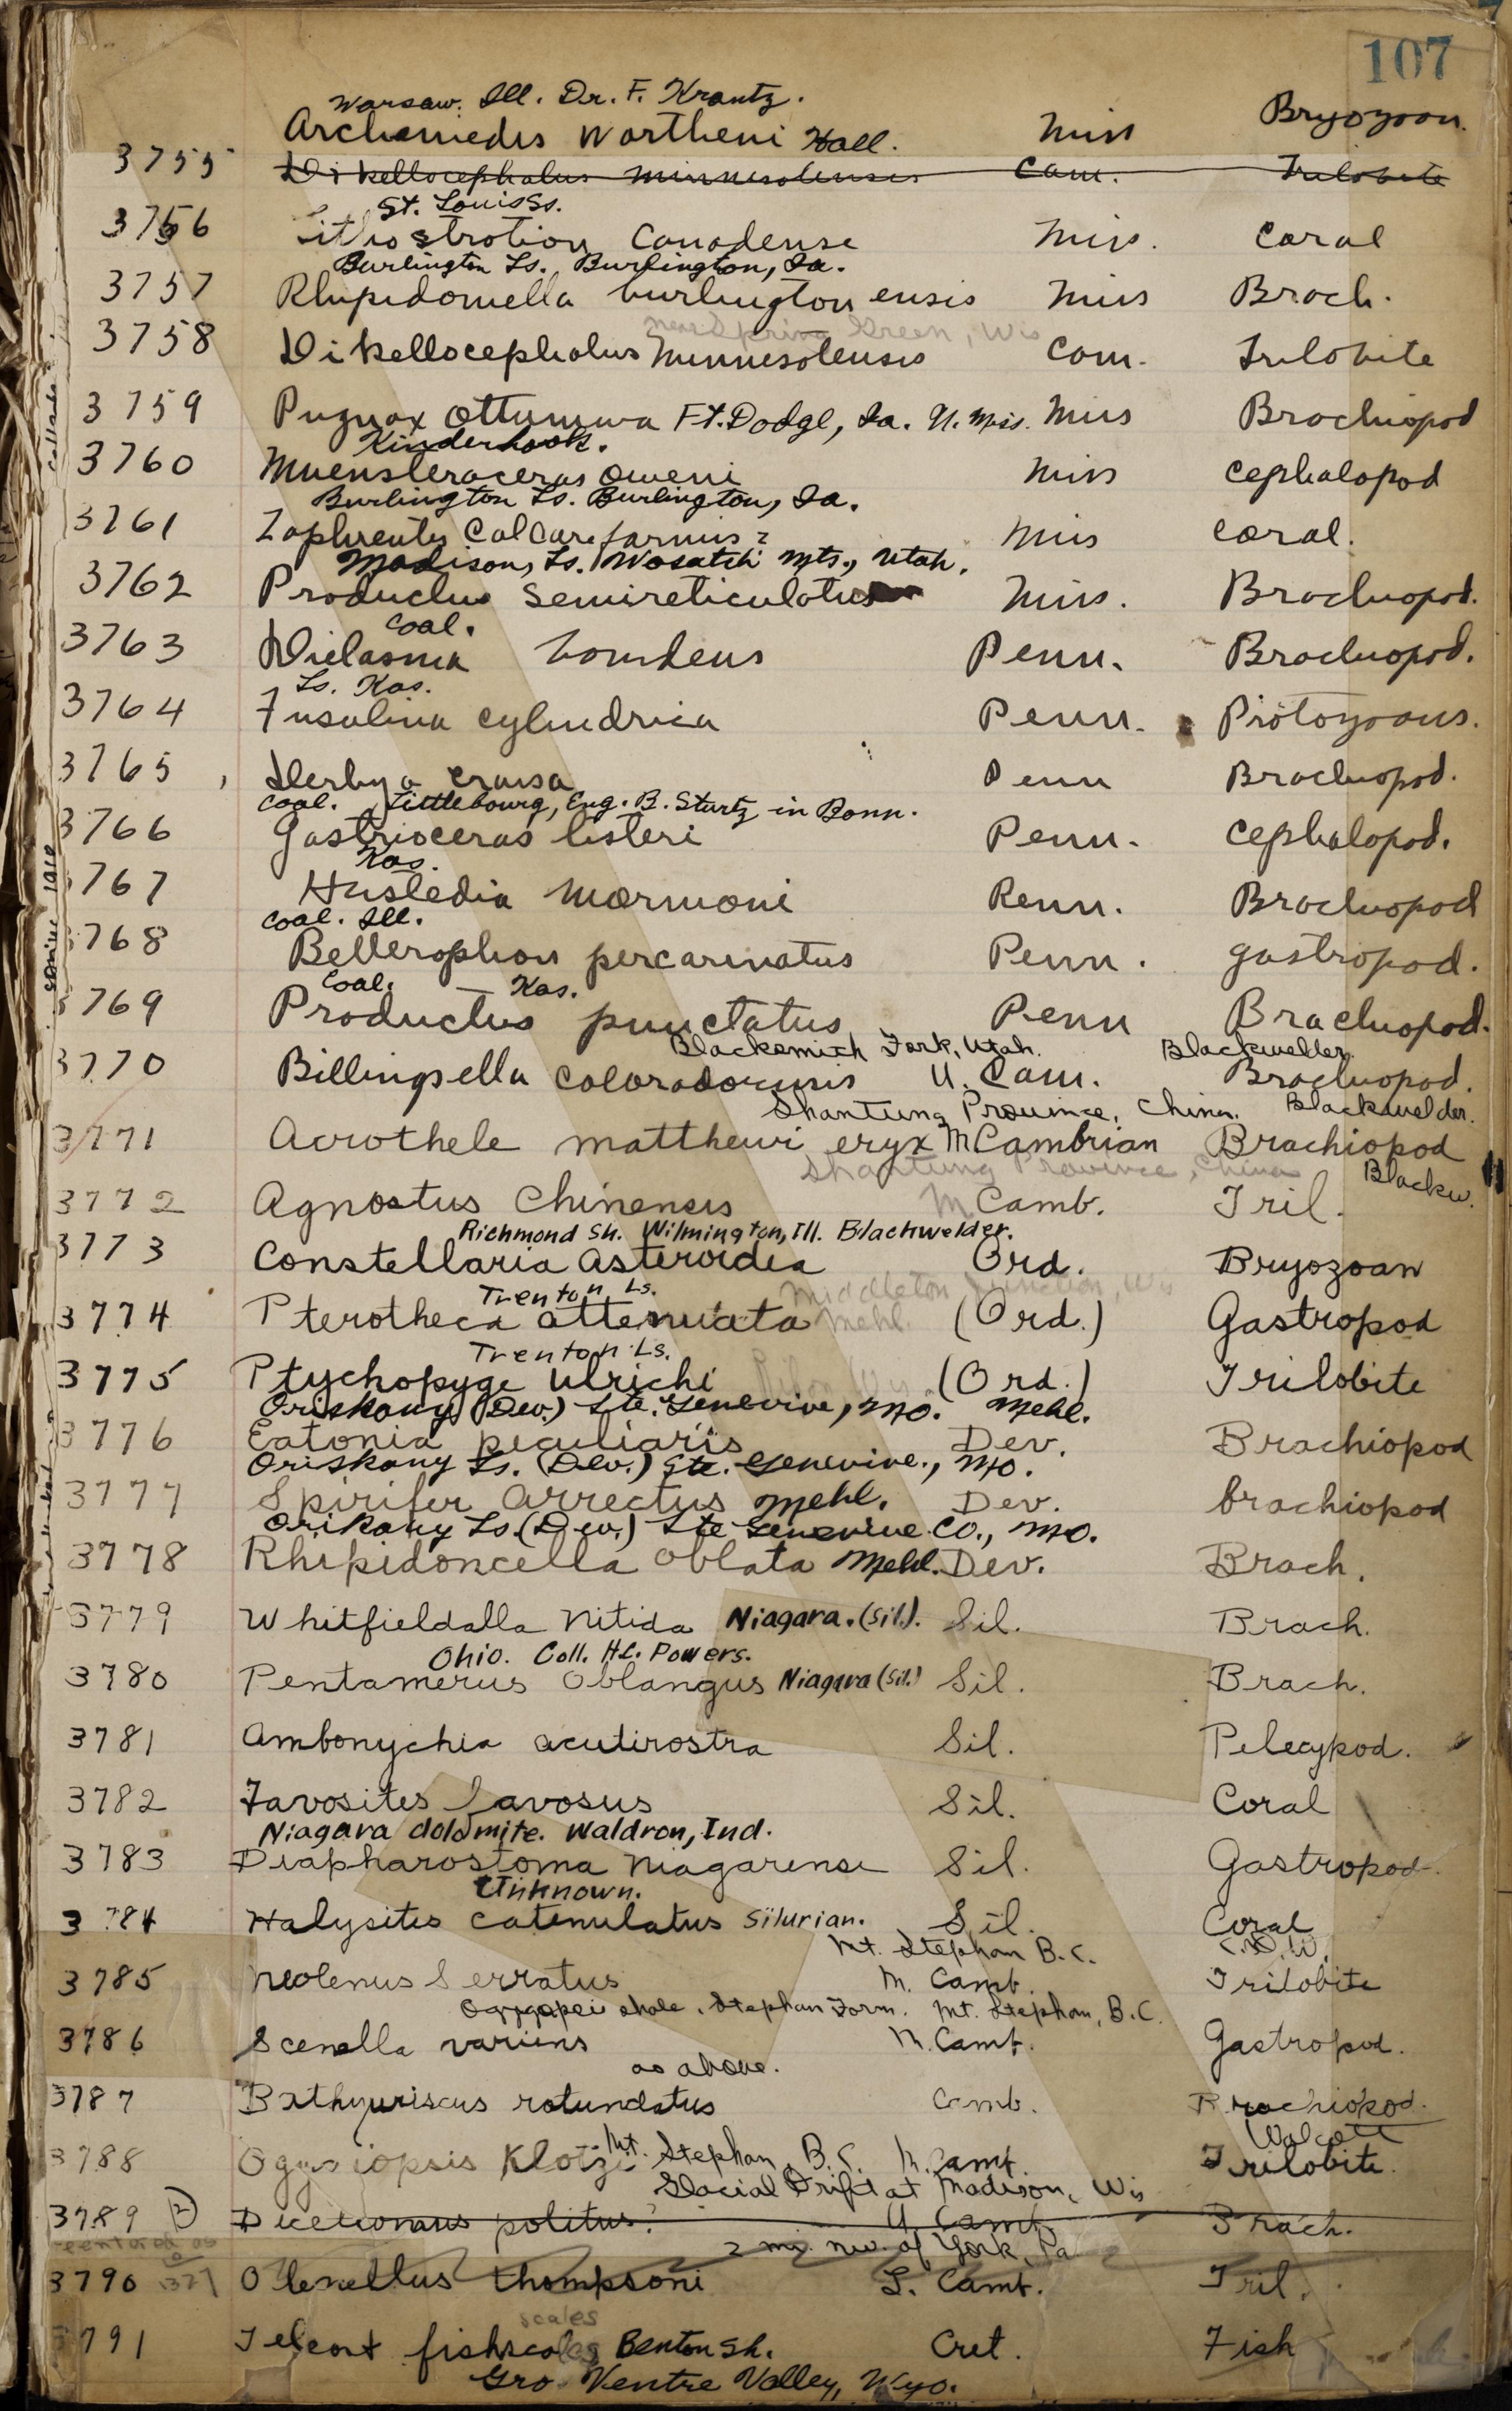 107
Warsaw. Ill. Dr. F. Krantz.
Archemedes Wortheni Hall. Miss Bryozoan.
3755 Dikellocephalus minnesotensis Cam. Trilobite
St. Louis Ss.
3756 Lithostrotion Canadense Miss. Coral
Burlington Ls. Burlington, Ia.
3757 Rhipidomella burlingtonensis Miss Brach.
near Spring Green, Wis
3758 Dikellocephalus Minnesotensis Cam. Trilobite
3759 Pugnax Ottumwa Ft. Dodge, Ia. U. Miss. Miss Brachiopod
Kinderhook.
3760 Muensteroceras Oweni Miss Cephalopod
Burlington Ls. Burlington, Ia.
3761 Zaphrentis Calcareformis? Miss Coral.
Madison, Ls. Wasatch Mts., Utah.
3762 Productus Semireticulatus Miss. Brachiopod.
Coal.
3763 Dielasma bovidens Penn. Brachiopod.
Ls. Kas.
3764 Fusulina cylindrica Penn. Protozoans.
3765 Derbya crassa Penn Brachiopod.
Coal. Littlebourg, Eng. B. Sturtz in Bonn.
3766 Gastrioceras listeri Penn. Cephalopod.
Kas.
3767 Hustedia Mormoni Penn. Brachiopod
Coal. Ill.
3768 Bellerophon percarinatus Penn. gastropod.
Coal. — Kas.
3769 Productus punctatus Penn Brachiopod.
Blacksmith Fork, Utah. Blackwelder.
3770 Billingsella Coloradoensis U. Cam. Brachiopod.
Shantung Province, China. Blackwelder.
3771 Acrothele matthewi eryx M Cambrian Brachiopod
Shantung Province, China Blackw.
3772 Agnostus Chinensis M Camb. Tril.
Richmond Sh. Wilmington, Ill. Blackwelder.
3773 Constellaria Asteroidea Ord. Bryozoan
Trenton Ls. Middleton Junction, Wis
3774 Pterotheca attenuata Mehl. (Ord.) Gastropod
Trenton Ls.
3775 Ptychopyge Ulrichi (Ord.) Trilobite
Oriskany (Dev.) Ste. Genevive, Mo. Mehl.
3776 Eatonia peculiaris Dev. Brachiopod
Oriskany Ls. (Dev.) Ste. Genevive., Mo.
3777 Spirifer Arrectus Mehl. Dev. brachiopod
Orikany Ls. (Dev.) Ste Genevive Co., Mo.
3778 Rhipidoncella Oblata Mehl. Dev. Brach.
3779 Whitfieldalla Nitida Niagara. (Sil.). Sil. Brach.
Ohio. Coll. H.C. Powers.
3780 Pentamerus Oblangus Niagara (Sil.) Sil. Brach.
3781 Ambonychia acutirostra Sil. Pelecypod.
3782 Favosites favosus Sil. Coral
Niagara dolomite. Waldron, Ind.
3783 Diapharostoma Niagarense Sil. Gastropod.
Unknown.
3784 Halysites catenulatus Silurian. Sil. Coral
Mt. Stephan B.C. C.D.W.
3785 Neolenus Serratus M. Camb. Trilobite
Ogygopsi shale. Stephan Form. Mt. Stephan, B.C.
3786 Scenella varians M. Camb. Gastropod.
as above.
3787 Bathyuriscus rotundatus Camb. Brachiopod.
Walcott
3788 Ogygiopsis Klotzi Mt. Stephan, B.C. M. Camb. Trilobite.
Glacial Drift at Madison, Wis
3789 Dicellomus politus? U. Camb. Brach.
reentered as
2 mi. nw. of York, Pa
3790 Olenellus thompsoni L. Camb. Tril.
scales
3791 Teleost fishscales Benton Sh. Cret. Fish
Gro Ventre Valley, Wyo.